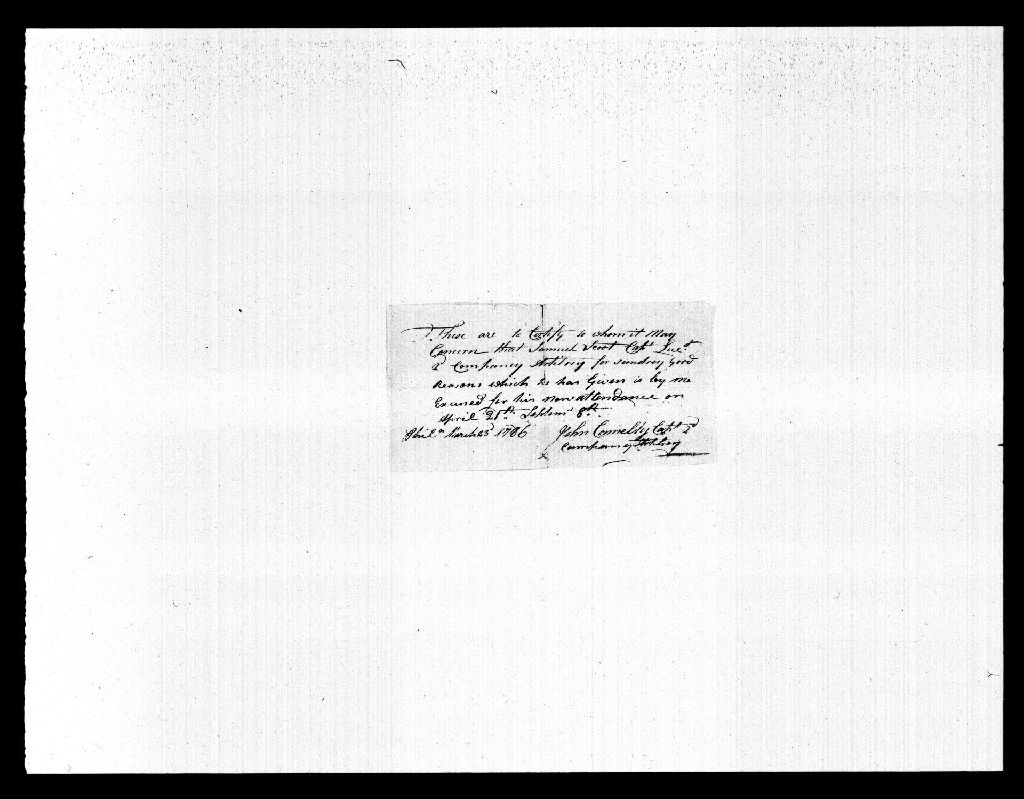 These are to Certify to whom it May
Concern that Samuel Scott Capt Lieut
2d Company Artilery for sundery good
Reasons which he has Given is by me
Excused for his non attendance on
April 25th Septemr 8th
Phila March 23 1786 John Connelly Capt 2d
Company Artilery